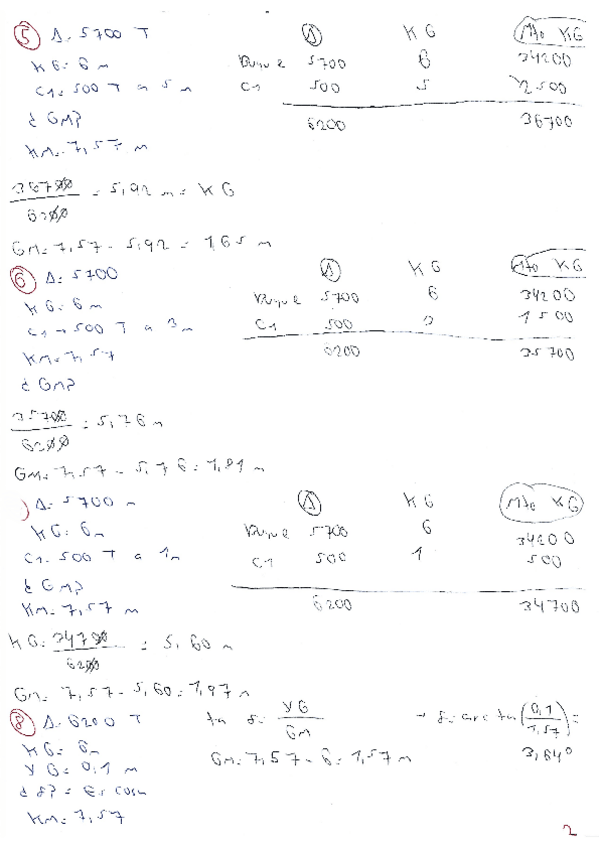 5 Δ= 5700 T Δ KG Mto KG
KG= 6 m Buque 5700 6 34200
C1= 500 T a 5 m C1 500 5 2500
¿GM? 6200 36700
KM= 7,57 m
36700/6200 = 5,92 m = KG
GM= 7,57 - 5,92 = 1,65 m
6 Δ= 5700 Δ KG Mto KG
KG= 6 m Buque 5700 6 34200
C1 → 500 T a 3 m C1 500 3 1500
KM= 7,57 6200 35700
¿GM?
35700/6200 = 5,76 m
GM= 7,57 - 5,76 = 1,81 m
) Δ= 5700 m Δ KG Mto KG
KG= 6m Buque 5700 6 34200
C1= 500 T a 1m C1 500 1 500
¿GM?
KM= 7,57 m 6200 34700
KG= 34700/6200 = 5,60 m
GM= 7,57 - 5,60 = 1,97 m
8 Δ= 6200 T tn θ= YG/GM → θ= arc tn (0,1/1,57) =
KG= 6m GM= 7,57 - 6 = 1,57 m 3,64º
YG= 0,1 m
¿θ? = Escora
KM= 7,57
2